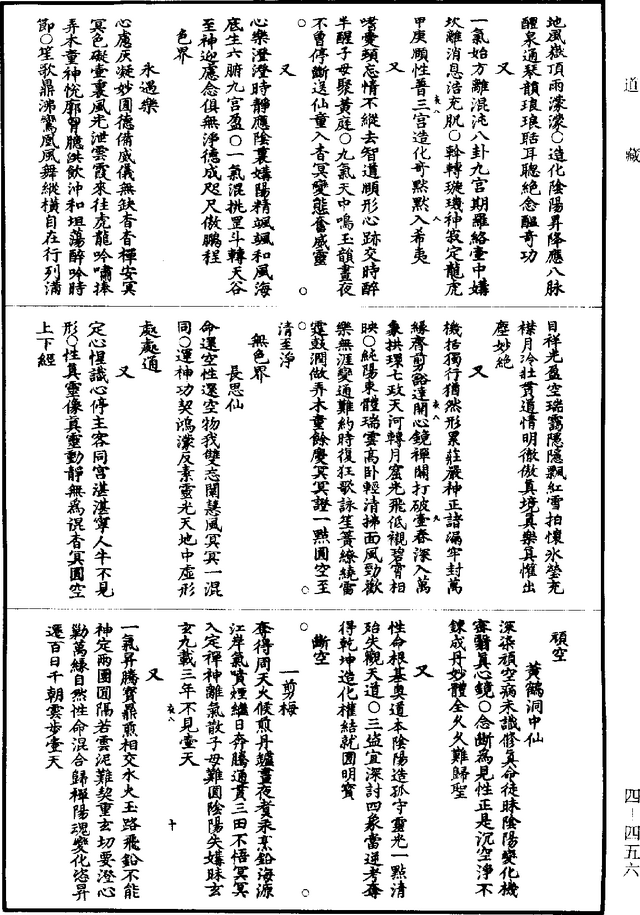 道藏
地風嶽頂雨濛濛○造化陰陽昇降應八脉
醒泉通琹韻琅琅聒耳聰絶念醖奇功
又
一氣始方離混沌八卦九宮期羅絡壷中媾
坎離消息浩充肌○斡轉璇璣神寂定龍虎
甲庚頤性普三宮造化奇黙黙入希夷
又
嗜愛頭忘情不縱去智道順形心跡交時醉
半醒子母聚黃庭○九氣天中鳴玉韻晝夜
不曾停斷送仙童入杳冥變態奮威靈
又
心樂澄澄時靜應陰裏媾陽精颯颯和風海
底生六腑九宮盈○一氣混挑罡斗轉天谷
至神迎應念俱無淨德成咫尺傲鵬程
色界
永遇樂
心慮灰凝妙圓德備威儀無缺杳杳禪安冥
冥色礙壷裏風光泄雲霞來往虎龍吟嘯捧
弄木童神悅廓胷膽洪飲沖和坦蕩醉吟時
節○笙歌鼎沸鸞鳳風舞縱橫自在行列滿
目祥光盈空瑞靄隱隱飄紅雪拍懷氷瑩充
襟月泠壯貫道情明徹傲眞境眞樂眞惟出
塵妙絶
又
機括獨行猶然形累莊嚴神正諸漏牢封萬
緣齊剪豁達開心鏡禪關打破壷春深入萬
象拱環七政天河轉月窟光飛低襯碧霄相
映○純陽東體瑞雲高卧輕清拂面風勁歡
樂無涯變通難約時復狂歌詠笙簧繚繞雷
霆鼓潤做弄木童餘慶冥冥證一點圓空至
清至淨
無色界
長思仙
命還空性還空物我雙忘闡慧風冥冥一混
同○運神功契鴻濛反素靈光天地中虛形
處處通
又
定心惺識心停主客同宮湛湛寧人牛不見
形○性眞靈像眞靈動靜無爲混杳冥圓空
上下經
頑空
黃鶴洞中仙
深染頑空病未識修眞命徒昧陰陽變化機
寧翳眞心鏡○念斷爲見性正是沉空淨不
鍊成丹妙體全久久難歸聖
又
性命根基奧道本陰陽造孤守靈光一點清
殆失觀天道○三盜宜深討四象當逆考奪
得乾坤造化權結就圓明寳
斷空
一剪梅
奪得周天火候煎丹爐晝夜煑汞烹鉛海源
江岸氣噴煙繼日奔騰通貫三田不悟冥冥
入定禪神離氣散子母難圓陰陽失媾昧玄
玄九載三年不見壷天
又
一氣昇騰寳鼎煎相交水火玉路飛鉛不能
神定兩團圓陽若雲泥難契重玄切要澄心
勦萬緣自然性命混合歸禪陽魂變化恣昇
遷百日千朝雲步壷天
四-四五六